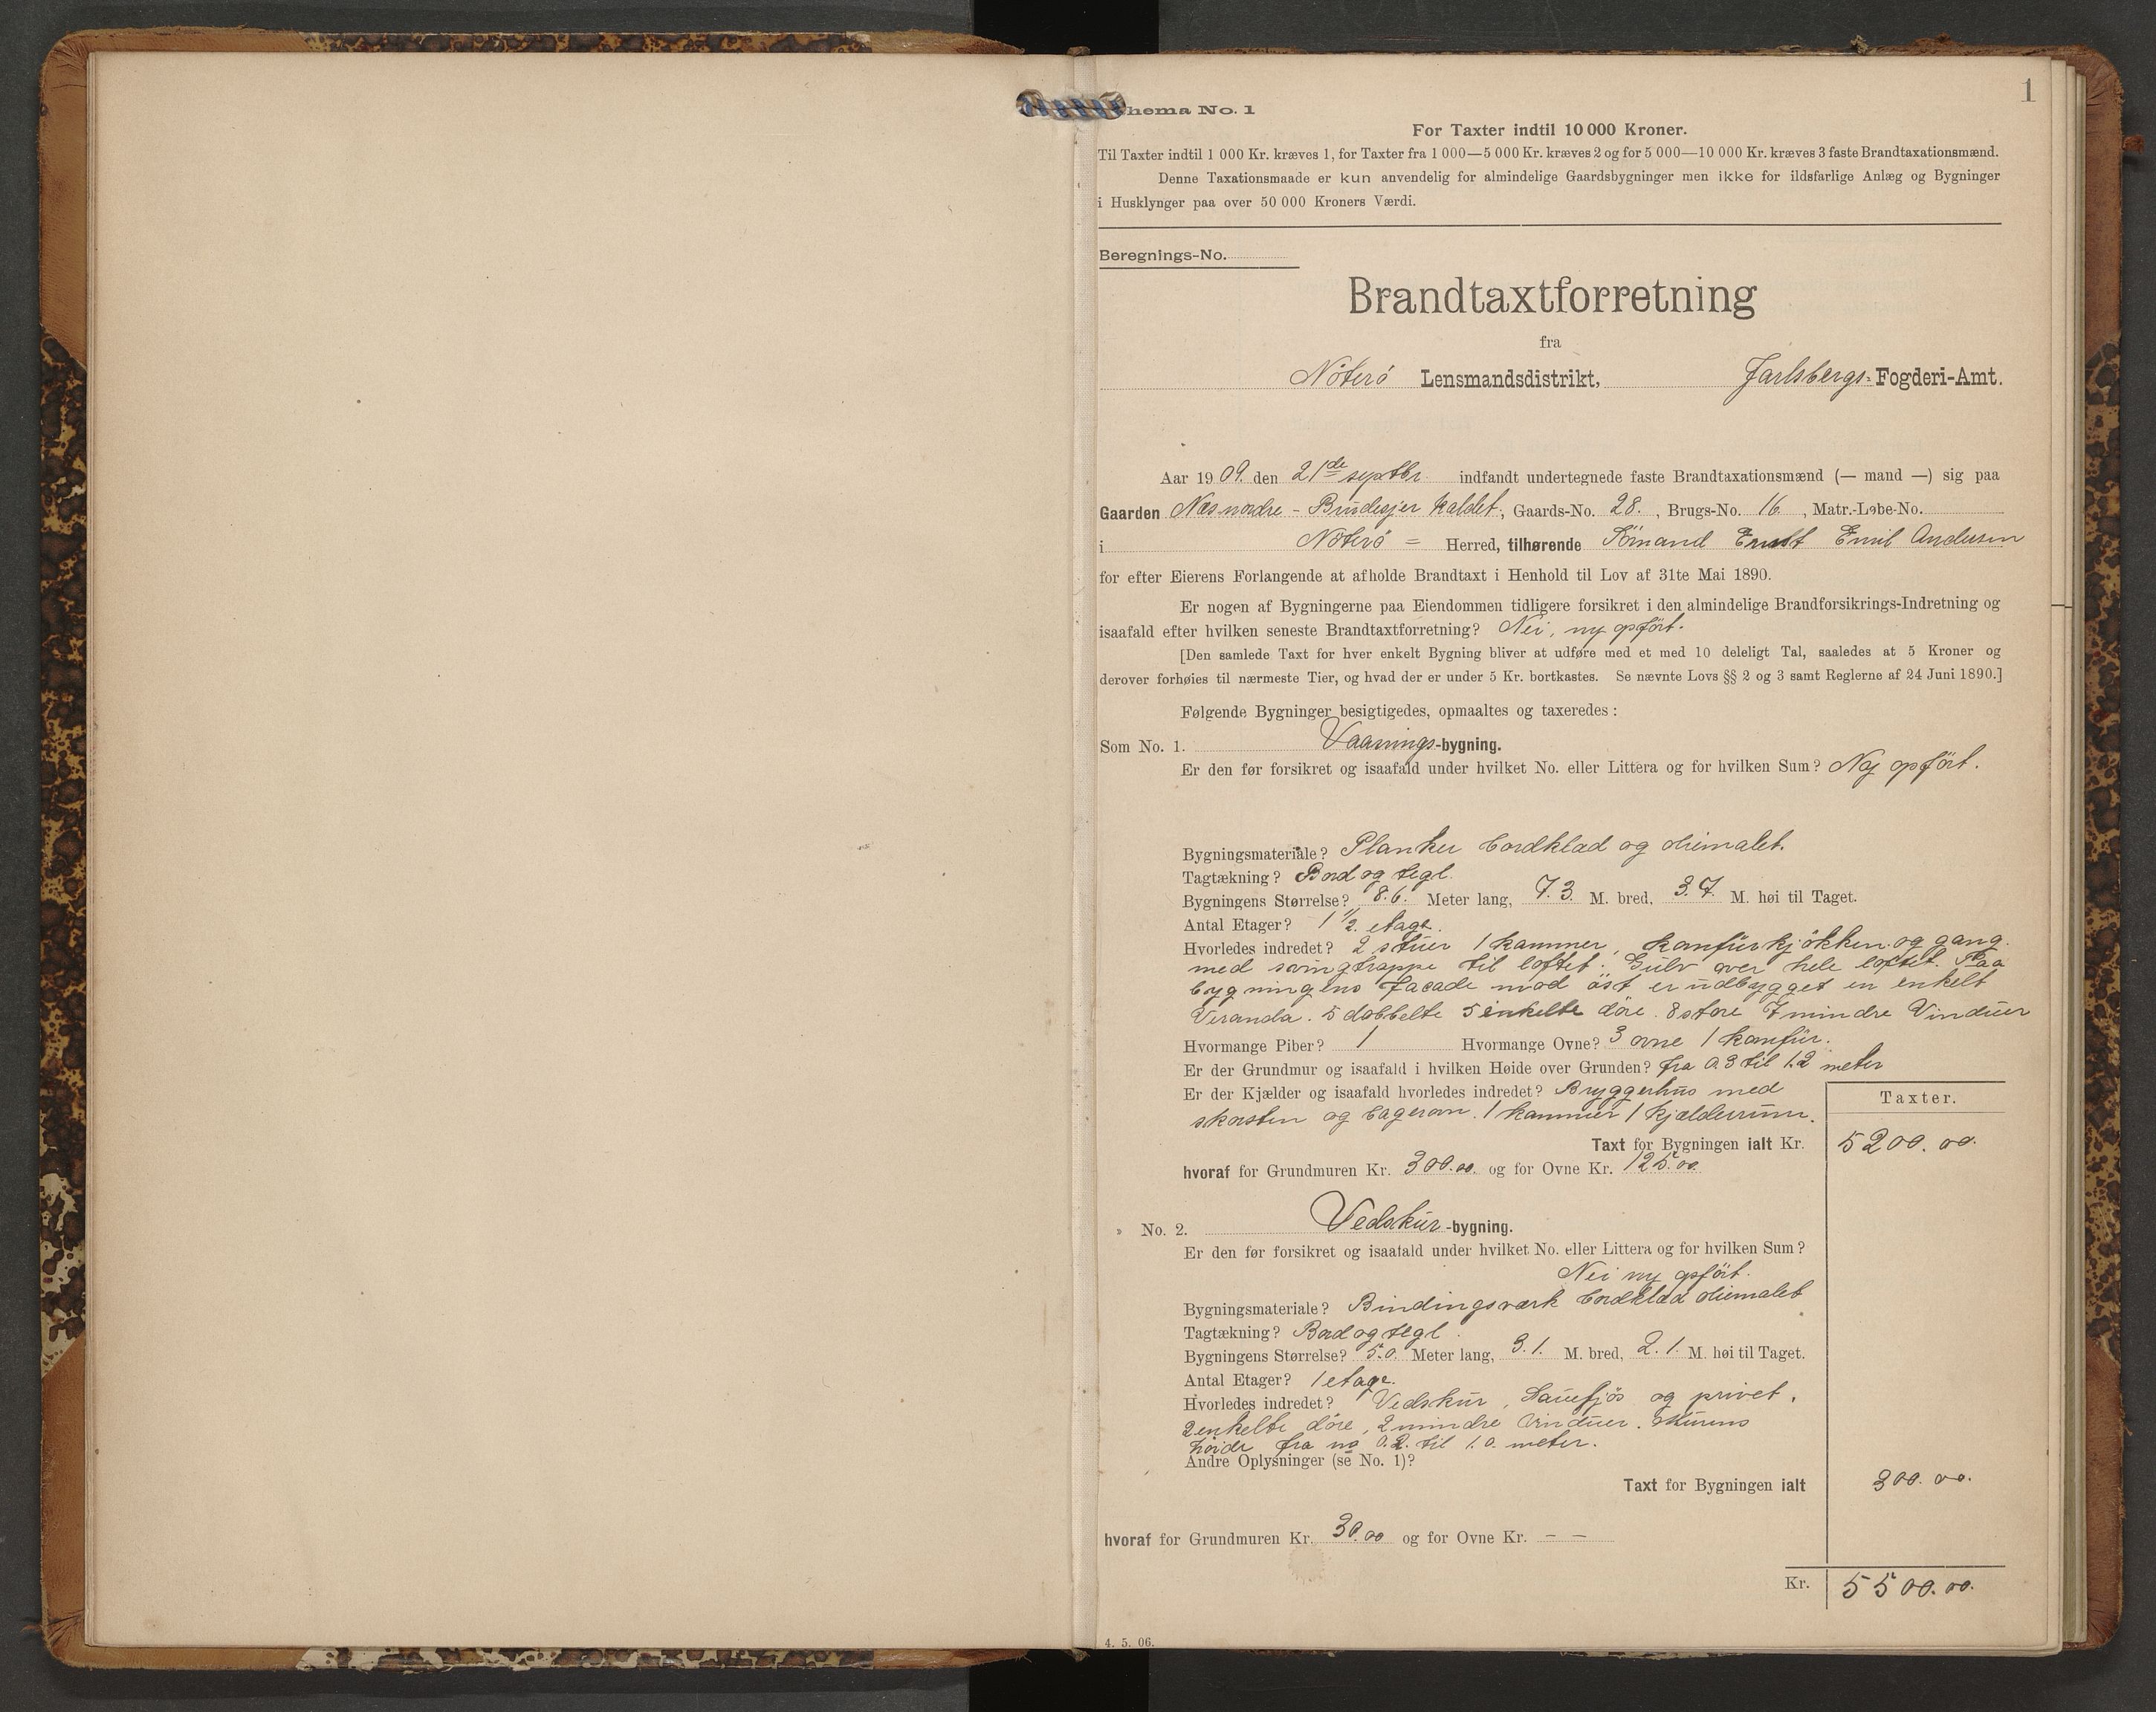 1
hema No. 1
For Taxter indtil 10 000 Kroner.
Til Taxter indtil 1 000 Kr. kræves 1, for Taxter fra 1 000—5 000 Kr. kræves 2 og for 5 000—10 000 Kr. kræves 3 faste Brandtaxationsmænd.
Denne Taxationsmaade er kun anvendelig for almindelige Gaardsbygninger men ikke for ildsfarlige Anlæg og Bygninger
i Husklynger paa over 50 000 Kroners Værdi.
Beregnings-No.
Brandtaxtforretning
fra
Nöterö Lensmandsdistrikt, Jarlsbergs Fogderi-Amt.
Aar 1909. den 21de septbr. indfandt undertegnede faste Brandtaxationsmænd (— mand —) sig paa
Gaarden Næs nordre - kaldet, Gaards-No. 28. , Brugs-No. 16 , Matr.-Løbe-No.
i Nöterö = Herred, tilhørende Sömand Ernst Emil Andersen
for efter Eierens Forlangende at afholde Brandtaxt i Henhold til Lov af 31te Mai 1890.
Er nogen af Bygningerne paa Eiendommen tidligere forsikret i den almindelige Brandforsikrings-Indretning og
isaafald efter hvilken seneste Brandtaxtforretning? Nei, ny opfört.
[Den samlede Taxt for hver enkelt Bygning bliver at udføre med et med 10 deleligt Tal, saaledes at 5 Kroner og
derover forhøies til nærmeste Tier, og hvad der er under 5 Kr. bortkastes. Se nævnte Lovs §§ 2 og 3 samt Reglerne af 24 Juni 1890.]
Følgende Bygninger besigtigedes, opmaaltes og taxeredes :
Som No. 1. Vaanings-bygning.
Er den før forsikret og isaafald under hvilket No. eller Littera og for hvilken Sum? Ny opfört.
Bygningsmateriale? Planker bordklæd og oliemalet.
Tagtækning? Bord og tegl.
Bygningens Størrelse? 8.6. Meter lang, 7.3. M. bred, 3.7. M. høi til Taget.
Antal Etager? 1 1/2. etage.
Hvorledes indredet? 2 stuer 1 kammer, komfürkjökken og gang.
med svingtrappe til loftet. Gulv over hele loftet. Paa
bygningens facade mod öst er udbygget en enkelt
Veranda. 5 dobbelte 5 enkelte döre. 8 store 7 mindre Vinduer
Hvormange Piber? 1 Hvormange Ovne? 3 ovne 1 komfür.
Er der Grundmur og isaafald i hvilken Høide over Grunden? fra 0.3 til 1.2 meter
Er der Kjælder og isaafald hvorledes indredet? Bryggerhus med
skorsten og bagerovn. 1 kammer 1 kjælderrum.
Taxter.
Taxt for Bygningen ialt Kr. 5200.00.
hvoraf for Grundmuren Kr. 300.00. og for Ovne Kr. 125.00
» No. 2. Vedskur-bygning.
Er den før forsikret og isaafald under hvilket No. eller Littera og for hvilken Sum?
Nei ny opfört.
Bygningsmateriale? Bindingsværk bordklæd oliemalet
Tagtækning? Bord og tegl.
Bygningens Størrelse? 5.0. Meter lang, 3.1. M. bred, 2.1. M. høi til Taget.
Antal Etager? 1 etage.
Hvorledes indredet? Vedskur, Sauefjös og privet.
2 enkelte döre, 2 mindre Vinduer. Murens
höide fra 0.2. til 1.0. meter.
Andre Oplysninger (se No. 1)?
Taxt for Bygningen ialt 300.00.
hvoraf for Grundmuren Kr. 30.00 og for Ovne Kr. — —
Kr. 5500.00.
4. 5. 06.